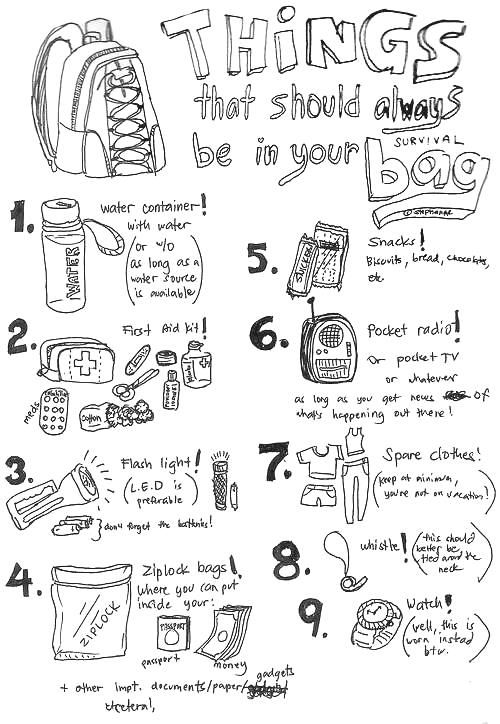 THINGS
that should always
be in your SURVIVAL
bag
1. water container!
with water
(or w/o
as long as a
water source
is available)
WATER
2. First Aid kit!
meds
cotton
3. Flash light!
(L.E.D is
preferable)
} don't forget the batteries!
4. Ziplock bags!
where you can put
inside your:
ZIPLOCK
PASSPORT
passport
money
+ other impt. documents/paper/gadgets
etcetera!,
5. Snacks!
Biscuits, bread, chocolates,
etc.
SNICKERS
6. Pocket radio!
Or pocket TV
or whatever
as long as you get news of
what's happening out there!
7. Spare clothes!
(keep at minimum,
you're not on vacation!)
8. whistle!
(this should
better be
tied around the
neck)
9. Watch!
(well, this is
worn instead
btw.)